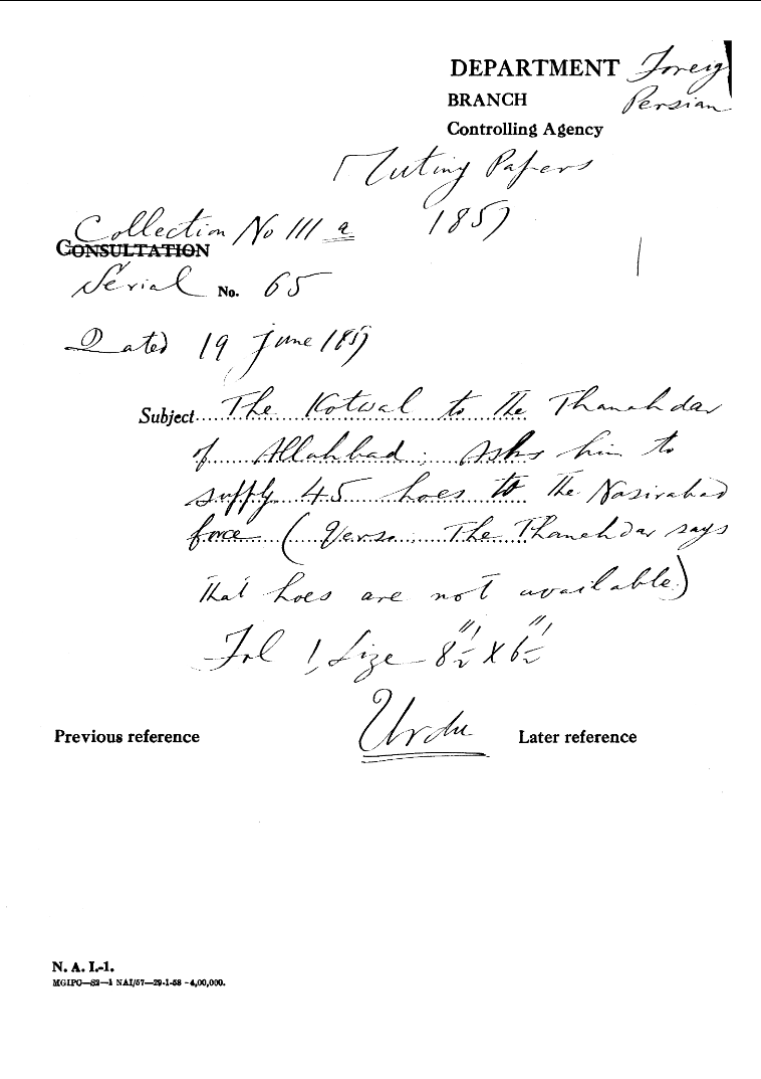 DEPARTMENT Foreig
BRANCH Persian
Controlling Agency
Mutiny Papers
Collection No III a 1857
CONSULTATION
Serial No. 65
Dated 19 June 1857
Subject The Kotwal to the Thanahdar
of Allahbad; Asks him to
supply 45 hoes to the Nasirabad
force (Verso: The Thanehdar says
that hoes are not available)
Fol 1, Size 8½" X 6½"
Previous reference Urdu Later reference
N. A. I.-1.
MGIPO—S2—1 NAI/57—29-1-58 -4,00,000.